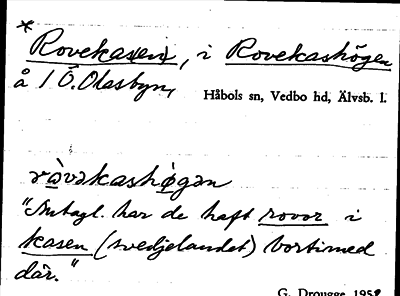 *
Rovekas(en), i Rovekashögen
å 1 Ö. Olasbyn,
Håbols sn, Vedbo hd, Älvsb. l.
ròvəkashøgən
"Antagl. har de haft rovor i
kasen (svedjelandet) bortimed
där."
G. Drougge 1958